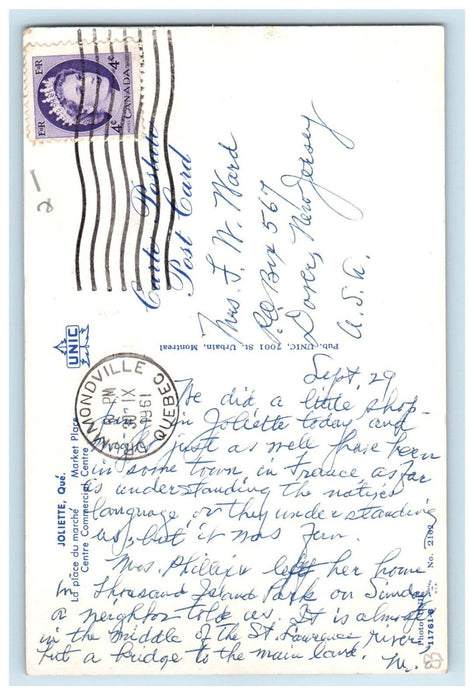 E R
CANADA
4¢
4¢
E R
2-
Carte Postale
Post Card
Mrs. F. W. Ward
P.O. Box 567
Dover, New Jersey
U.S.A.
Pub. UNIC, 7001 St. Urbain, Montreal
UNIC
DRUMMONDVILLE QUEBEC
PM
30 IX
1961
JOLIETTE, Qué.
La place du marché Market Place
Centre Commercial Centre
Photo UNIC
11761-C No. 2102
Sept, 29
We did a little shop-
ping in Joliette today and
might just as well have been
in some town in France as far
as understanding the natives
language, or they understanding
us, but it was fun.
Mrs. Phillips left her home
in Thousand Island Park on Sunday
a neighbor told us. It is almost
in the middle of the St. Lawrence river
but a bridge to the main land.
M.